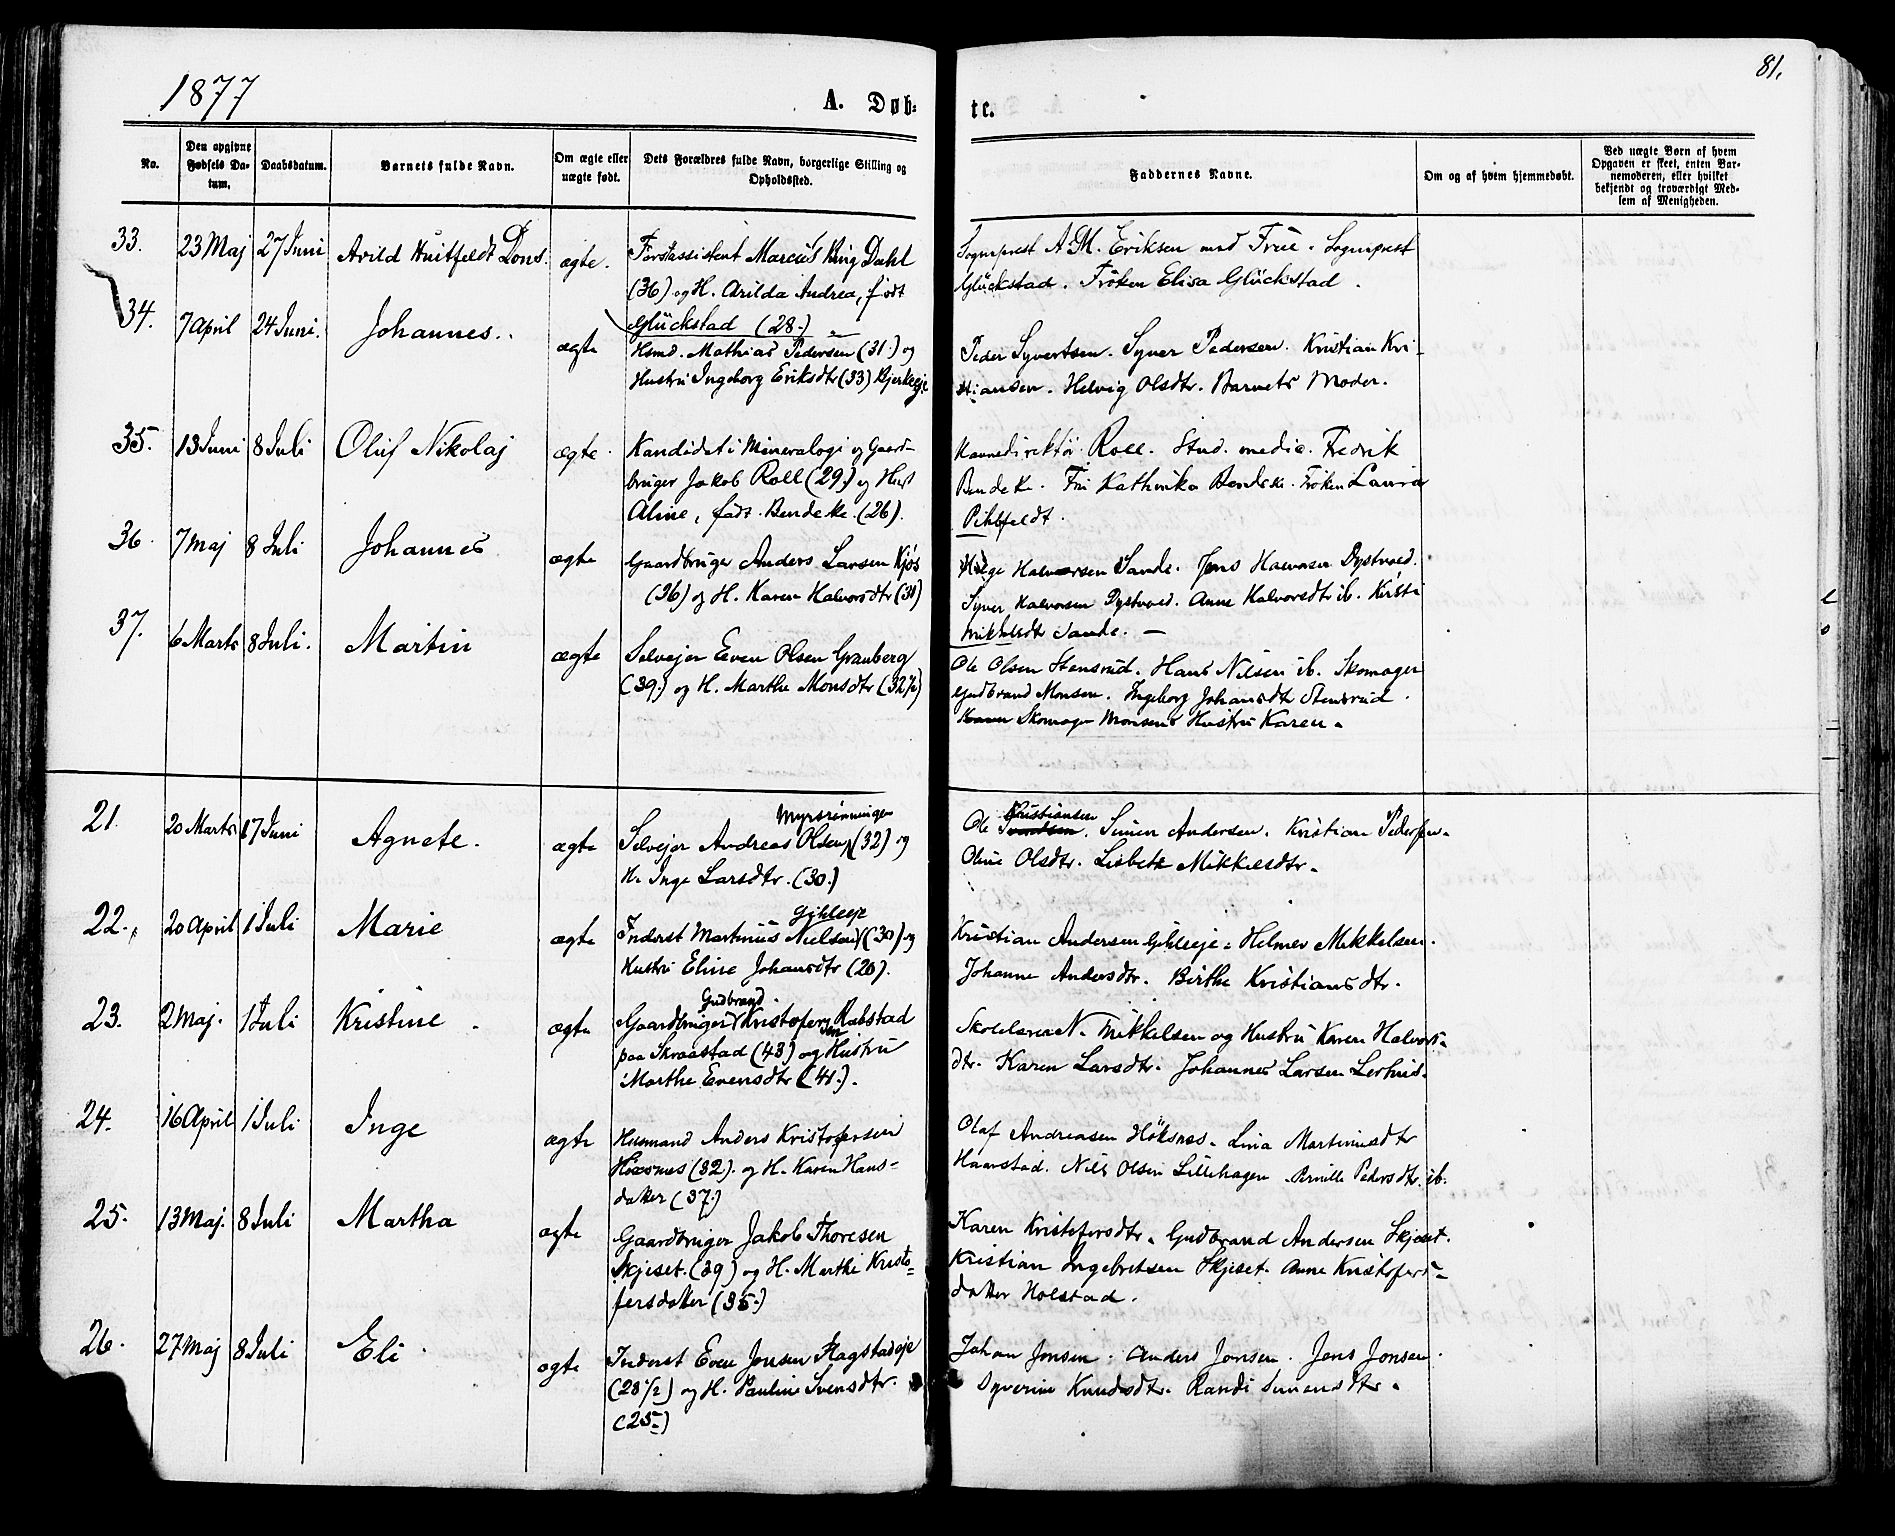 1877
A. Døb-
te.
81.
No.
Den opgivne Fødsels Da-tum.
Daabsdatum.
Barnets fulde Navn.
Om ægte eller uægte født.
Dets Forældres fulde Navn, borgerlige Stilling og Opholdssted.
Faddernes Navne.
Om og af hvem hjemmedøbt.
Ved uægte Børn af hvem Opgaven er skeet, enten Bar-nemoderen, eller hvilket bekjendt og troværdigt Med-lem af Menigheden.
33. 23 Maj 27 Juni Arild Huitfeldt Dons. ægte.
Forstassistent Marcus Bing Dahl
(36) og H. Arilda Andrea, født
Glückstad (28.)
Sogneprest A. M. Eriksen med Frue. Sogneprest
Glückstad. Frøken Elisa Glückstad.
34. 7 April 24 Juni. Johannes. ægte
Hsmd. Mathias Pedersen (31.) og
Hustru Ingeborg Eriksdtr (33) Bjerkeeje
Peder Syvertsen. Syver Pedersen. Kristian Kri-
stiansen. Helvig Olsdtr. Barnets Moder.
35. 13 Juni 8 Juli Oluf Nikolaj ægte
Kandidat i Mineralogi og Gaard-
bruger Jakob Roll (29.) og Hust
Aline, født Bendeke. (26).
Havnedirektør Roll. Stud. medic. Fredrik
Bendeke. Fru Kathinka Bendeke. Frøken Laura
Pihlfeldt.
36. 7 Maj 8 Juli Johannes ægte
Gaardbruger Anders Larsen Kjos
(36) og H. Karen Halvorsdtr (31)
Halvorsen Sande. Jens Halvorsen Dystvold.
Syver Halvorsen Dystvold. Anne Halvorsdtr ib. Kirsti
Mikkelsdtr Sande. —
37. 6 Marts 8 Juli. Martin ægte
Selvejer Even Olsen Granberg
(39.) og H. Marthe Monsdtr (32½)
Ole Olsen Stensrud. Hans Nilsen ib. Skomager
Gudbrand Monsen. Ingeborg Johansdtr Stensrud.
Skomager Monsens Hustru Karen.
21. 20 Marts 17 Juni Agnete. ægte
Myrsrønningen
Selvejer Andreas Olsen (32) og
H. Inge Larsdtr. (30.)
Kristiansen
Ole Simen Andersen. Kristian Pedersen.
Oline Olsdtr. Lisbeth Mikkelsdtr.
22. 20 April 1 Juli Marie ægte
Gihleeje
Inderst Martinus Nielsen (30) og
Hustru Eline Johansdtr (20).
Kristian Andersen Gihleeje. Helmer Mikkelsen.
Johanne Andersdtr. Birthe Kristiansdtr.
23. 2 Maj. 1 Juli Kristine ægte
Gudbrand
Gaardbruger Kristofersen Rabstad
paa Skraastad (43) og Hustru
Marthe Evensdtr (41.).
Skolelærer N. Mikkelsen og Hustru Karen Halvors-
dtr. Karen Larsdtr. Johannes Larsen Lerhus.
24. 16 April 1 Juli Inge ægte
Husmand Anders Kristofersen
Høxnes (32). og H. Karen Hans-
datter (37.)
Olaf Andreasen Høksnes. Lina Martinusdtr
Haarstad. Nils Olsen Lillehagen. Pernille Pedersdtr. ib.
25. 13 Maj. 8 Juli Martha ægte
Gaardbruger Jakob Thoresen
Skjeset. (39) og H. Marthe Kristo-
fersdatter (35.)
Karen Kristofersdtr. Gudbrand Andersen Skjeset.
Kristian Ingebretsen Skjeset. Anne Kristofers-
datter Holstad.
26. 27 Maj 8 Juli Eli ægte
Inderst Even Jonsen Flagstadeje
(28½) og H. Pauline Svensdtr.
(25)
Johan Jonsen. Anders Jonsen. Jens Jonsen.
Syverine Knudsdtr. Randi Simensdtr.